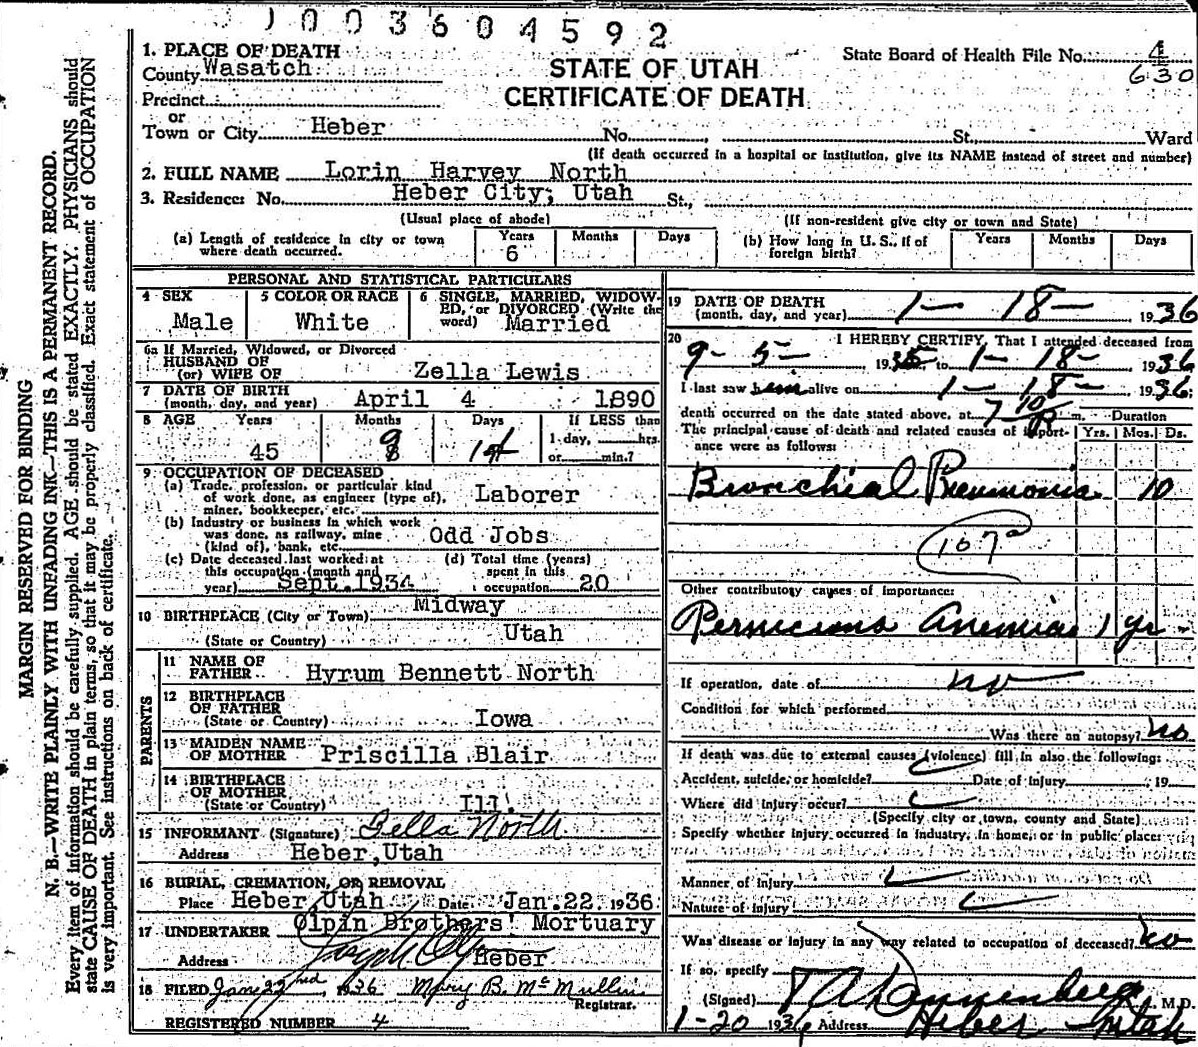 1003604592
1. PLACE OF DEATH
County Wasatch
STATE OF UTAH
CERTIFICATE OF DEATH
State Board of Health File No. 4
630
Precinct
or
Town or City Heber No. St., Ward
(If death occurred in a hospital or institution, give its NAME instead of street and number)
2. FULL NAME Lorin Harvey North
3. Residence: No. Heber City; Utah St.,
(Usual place of abode) (If non-resident give city or town and State)
(a) Length of residence in city or town where death occurred. Years 6 Months Days
(b) How long in U. S., if of foreign birth? Years Months Days
PERSONAL AND STATISTICAL PARTICULARS
4 SEX Male
5 COLOR OR RACE White
6 SINGLE, MARRIED, WIDOWED, or DIVORCED (Write the word) Married
6a If Married, Widowed, or Divorced
HUSBAND OF
(or) WIFE OF Zella Lewis
7 DATE OF BIRTH
(month, day, and year) April 4 1890
8 AGE Years 45 Months 9 Days If LESS than 1 day, hrs. or min.?
9 OCCUPATION OF DECEASED
(a) Trade, profession, or particular kind
of work done, as engineer (type of),
miner, bookkeeper, etc. Laborer
(b) Industry or business in which work
was done, as railway, mine
(kind of), bank, etc. Odd Jobs
(c) Date deceased last worked at
this occupation (month and
year) Sept. 1934
(d) Total time (years)
spent in this
occupation 20
10 BIRTHPLACE (City or Town) Midway
(State or Country) Utah
PARENTS
11 NAME OF
FATHER Hyrum Bennett North
12 BIRTHPLACE
OF FATHER
(State or Country) Iowa
13 MAIDEN NAME
OF MOTHER Priscilla Blair
14 BIRTHPLACE
OF MOTHER
(State or Country) Ill.
15 INFORMANT (Signature) Zella North
Address Heber, Utah
16 BURIAL, CREMATION, OR REMOVAL
Place Heber, Utah Date Jan. 22, 1936
17 UNDERTAKER Olpin Brothers' Mortuary
Address Heber
18 FILED Jan 22nd, 1936 Mary B. McMullin
Registrar.
REGISTERED NUMBER 4
19 DATE OF DEATH
(month, day, and year) 1- 18- 1936
20 I HEREBY CERTIFY, That I attended deceased from
9- 5- 1935, to 1- 18- 1936
I last saw him alive on 1- 18- 1936.
death occurred on the date stated above, at 7 10 P m. Duration
The principal cause of death and related causes of importance were as follows: Yrs. Mos. Ds.
Bronchial Pneumonia 10
107a
Other contributory causes of importance:
Pernicious Anemia 1 yr -
If operation, date of no
Condition for which performed
Was there an autopsy? no
If death was due to external causes (violence) fill in also the following:
Accident, suicide, or homicide? Date of injury 19
Where did injury occur?
(Specify city or town, county and State)
Specify whether injury occurred in industry, in home, or in public place:
Manner of injury
Nature of injury
Was disease or injury in any way related to occupation of deceased? no
If so, specify
(Signed) M.D.
1-20 1936 Address Heber Utah
MARGIN RESERVED FOR BINDING
N. B.—WRITE PLAINLY WITH UNFADING INK—THIS IS A PERMANENT RECORD.
Every item of information should be carefully supplied. AGE should be stated EXACTLY. PHYSICIANS should
state CAUSE OF DEATH in plain terms, so that it may be properly classified. Exact statement of OCCUPATION
is very important. See instructions on back of certificate.